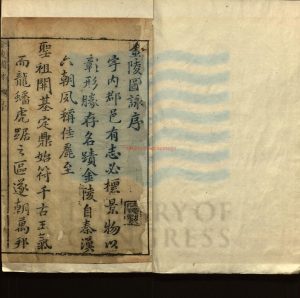 金陵圖詠序
宇内郡邑有志必標景物以
彰形勝存名蹟金陵自秦漢
六朝夙稱佳麗至
聖祖開基定鼎始符千古王氣
而龍蟠虎踞之區遂朝萬邦
LIBRARY OF
CONGRESS